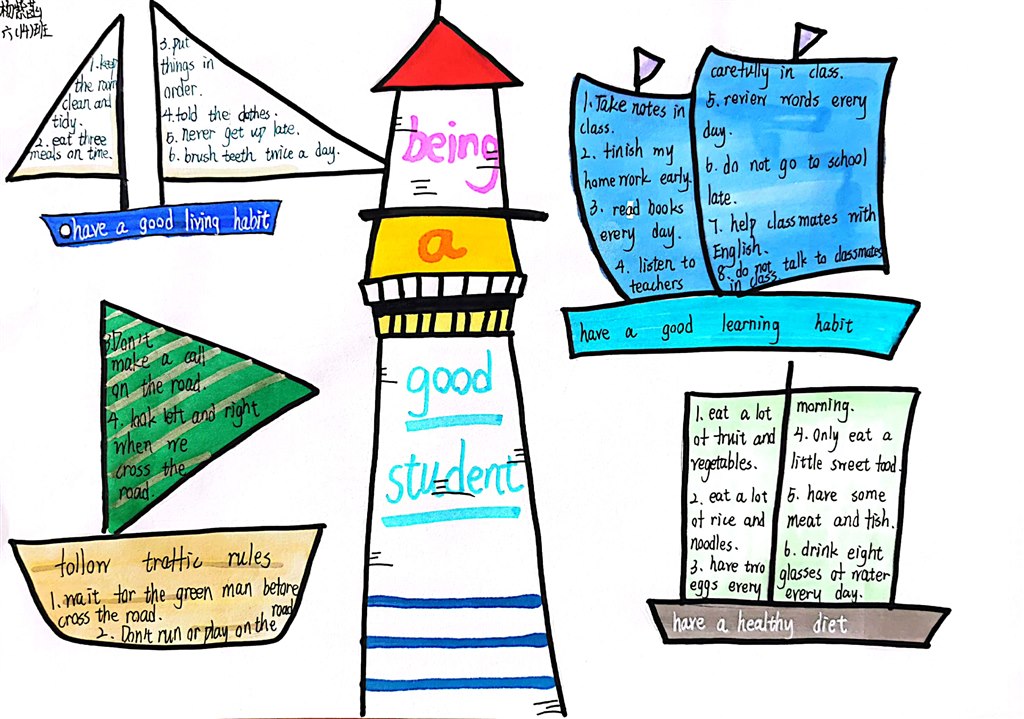 杨紫茜
六(14)班
1. keep
the room
clean and
tidy.
2. eat three
meals on time.
3. put
things in
order.
4. fold the clothes.
5. never get up late.
6. brush teeth twice a day.
have a good living habit
being
a
good
student
1. Take notes in
class.
2. finish my
homework early.
3. read books
every day.
4. listen to
teachers
carefully in class.
5. review words every
day.
6. do not go to school
late.
7. help classmates with
English.
8. do not talk to classmates
in class.
have a good learning habit
follow traffic rules
1. wait for the green man before
cross the road.
2. Don't run or play on the road
3 Don't
make a call
on the road.
4. look left and right
when we
cross the
road.
1. eat a lot
of fruit and
vegetables.
2. eat a lot
of rice and
noodles.
3. have two
eggs every
morning.
4. Only eat a
little sweet food.
5. have some
meat and fish.
6. drink eight
glasses of water
every day.
have a healthy diet